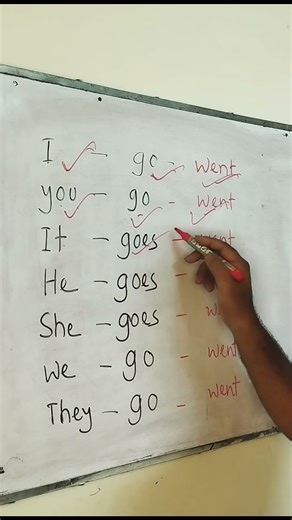 I - go - went
you - go - went
It - goes - went
He - goes -
She - goes -
We - go - went
They - go - went